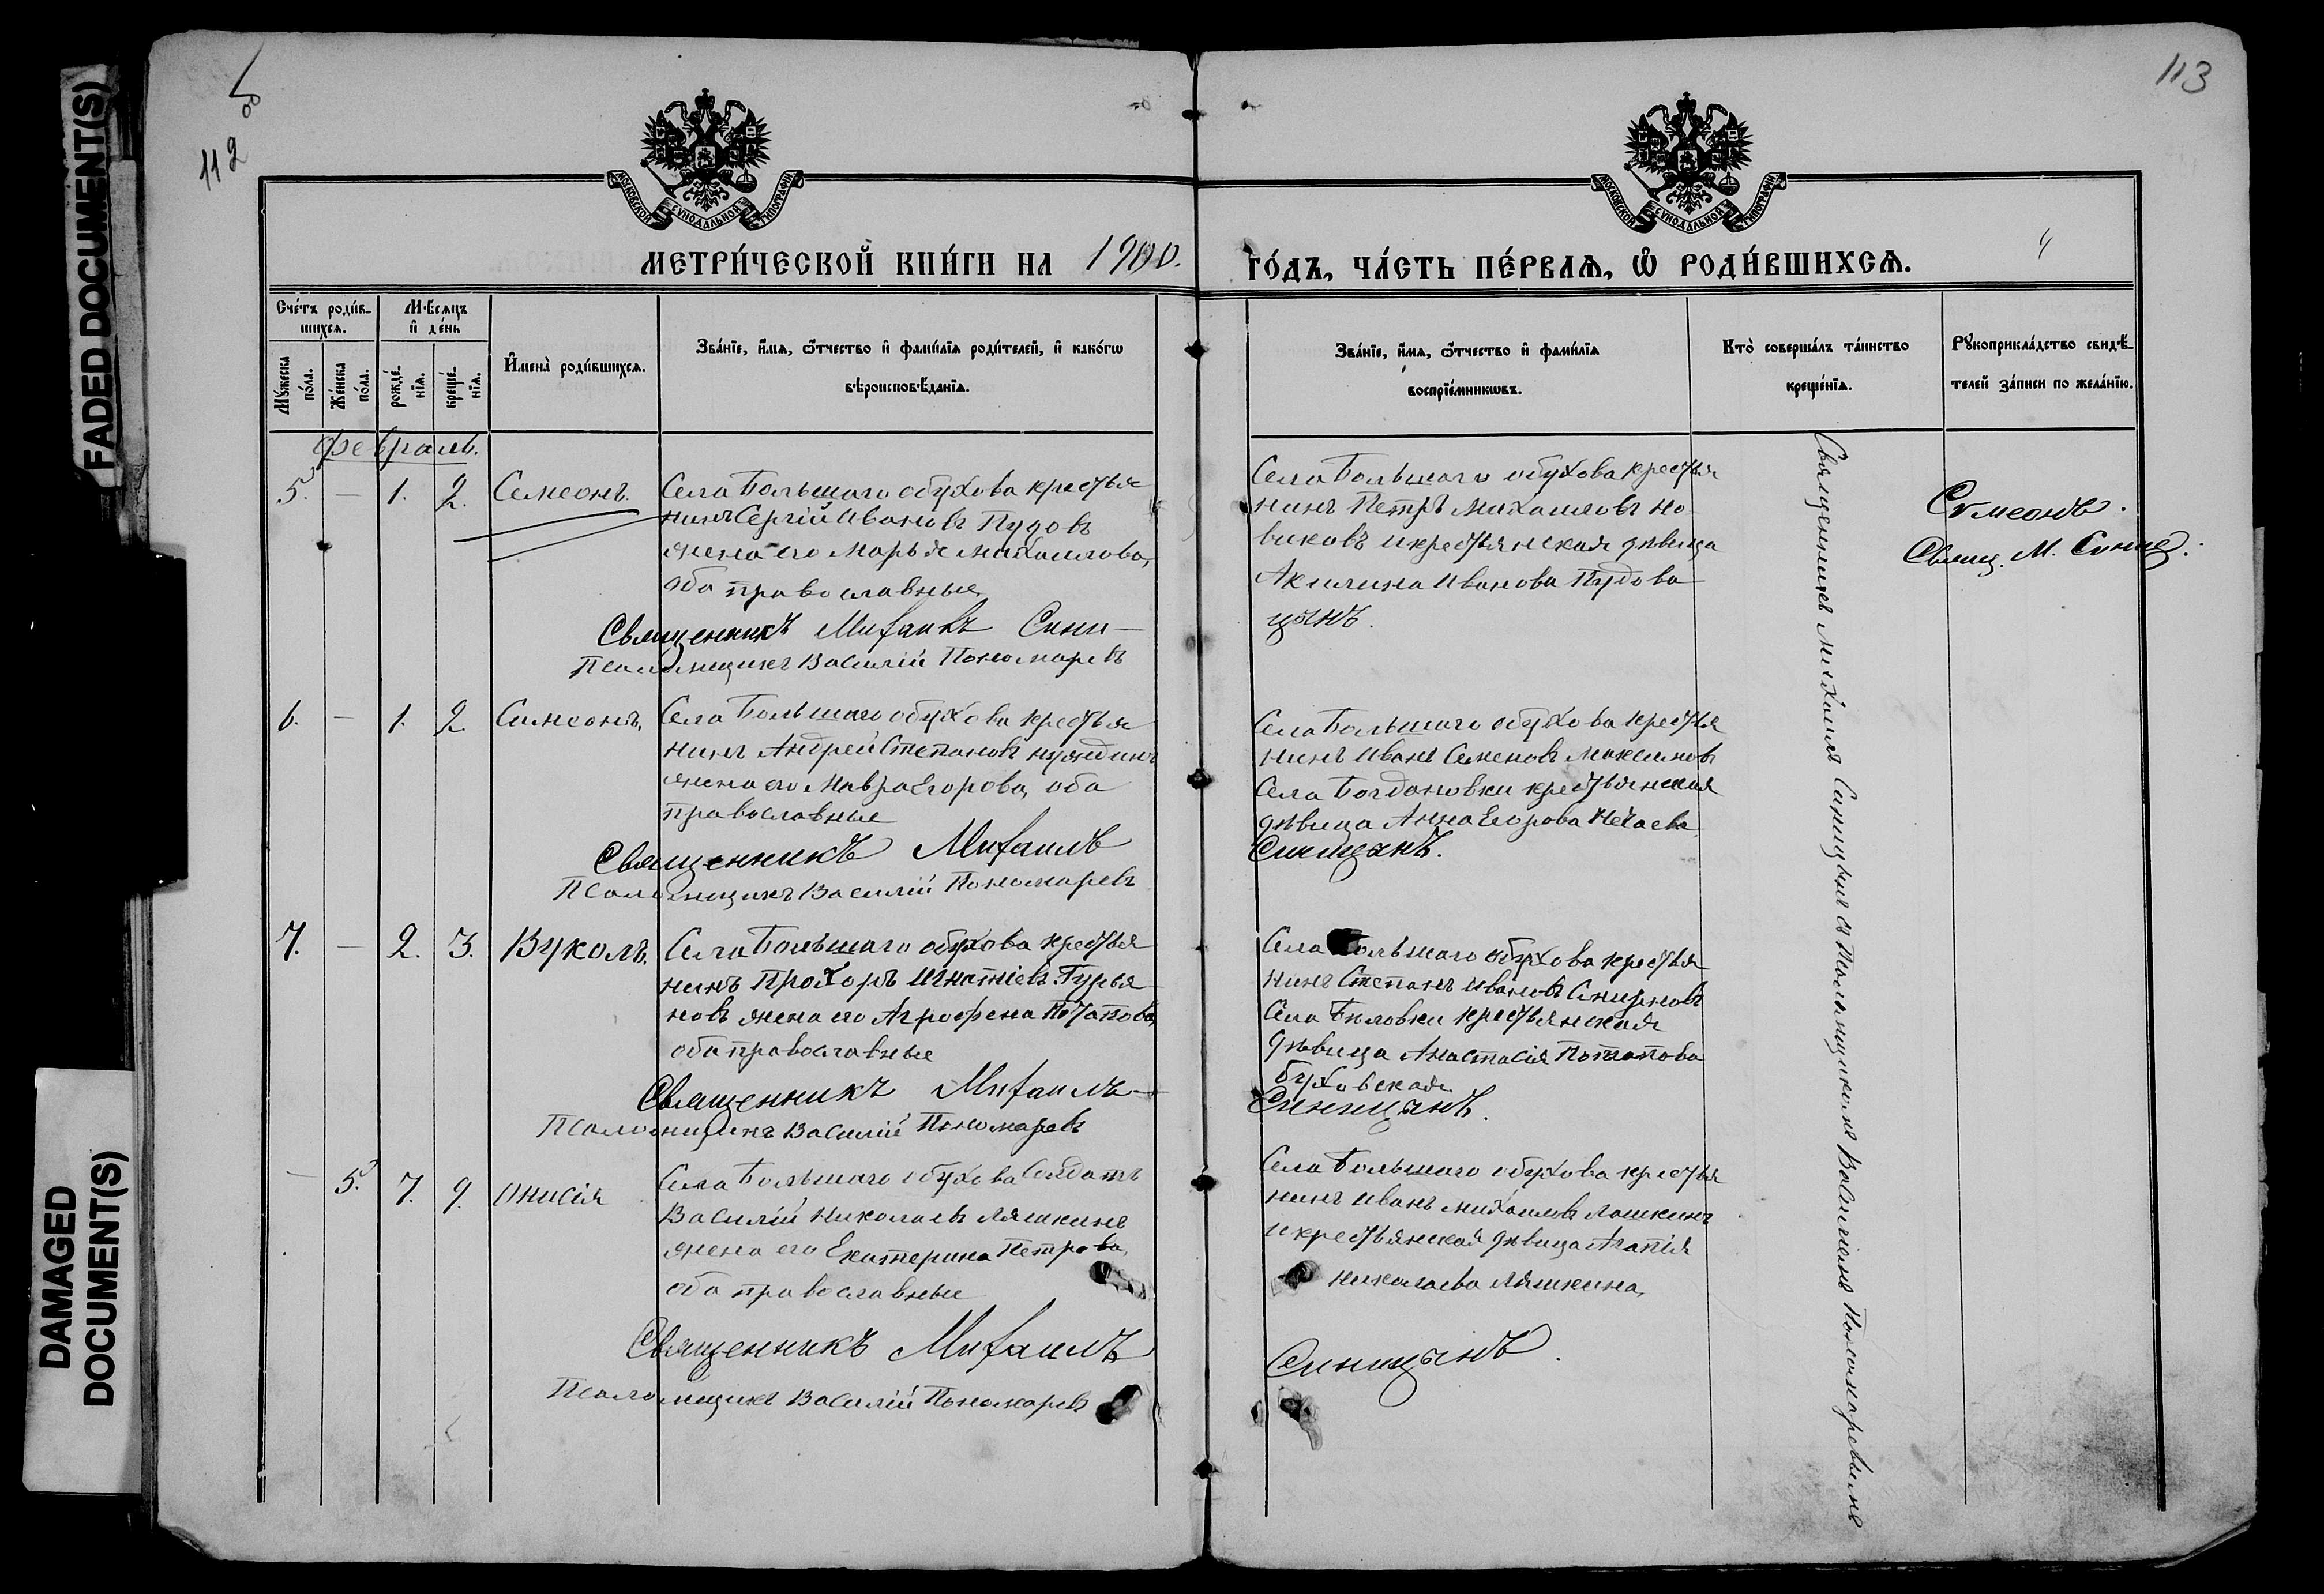 FADED DOCUMENT(S)
DAMAGED
DOCUMENT(S)
112
об
113
МОСКОВСКОЙ СѴНОДАЛЬНОЙ ТИПОГРАФІИ
МОСКОВСКОЙ СѴНОДАЛЬНОЙ ТИПОГРАФІИ
МЕТРИ́ЧЕСКОЙ КНИ́ГИ НА 1900.
ГО́ДЪ, ЧА́СТЬ ПЕ́РВАѦ, Ѽ РОДИ́ВШИХСѦ.
4
Сче́тъ роди́в-
шихсѧ.
Мꙋ́жеска
по́ла.
Же́нска
по́ла.
Мѣ́сѧцъ
и҆ де́нь
рожде́-
нїѧ.
креще́-
нїѧ.
И҆мена̀ роди́вшихсѧ.
Зва́нїе, и҆́мѧ, ѻ҆́тчество и҆ фами́лїѧ роди́телей, и҆ како́гѡ
вѣроисповѣ́данїѧ.
Зва́нїе, и҆́мѧ, ѻ҆́тчество и҆ фами́лїѧ
воспрїе́мникѡвъ.
Кто̀ соверша́лъ та́инство
креще́нїѧ.
Рꙋкоприкла́дство свидѣ́-
телей за́писи по жела́нїю.
Февраль.
5. — 1. 2. Семеонъ.
Села Большаго обухова крестья
нинъ Сергій Ивановъ Пудовъ
жена его Марья Михаилова,
оба православные
Священникъ Михаилъ Сини-
Псаломщикъ Василій Пономаревъ
Села Большаго обухова крестья
нинъ Петръ Михаиловъ Но
виковъ и крестьянская дѣвица
Акилина Иванова Пудова
цынъ.
Сѵмеонъ.
Свящ. М. Синиц.
6. — 1. 2. Симеонъ.
Села Большаго обухова крестья
нинъ Андрей Степановъ нуждинъ
жена его Мавра Егорова, оба
православные
Священникъ Михаилъ
Псаломщикъ Василій Пономаревъ
Села Большаго обухова крестья
нинъ Иванъ Семеновъ Максимовъ
Села Богдановки крестьянская
дѣвица Анна Егорова Нечаева
Синицынъ.
7. — 2. 3. Вуколъ.
Села Большаго обухова крестья
нинъ Прохоръ Игнатіевъ Гурья
новъ жена его Агрофена Потапова,
оба православные
Священникъ Михаилъ
Псаломщикъ Василій Пономаревъ
Села Большаго обухова крестья
нинъ Степанъ Ивановъ Смирновъ
Села Биловки крестьянская
дѣвица Анастасія Потапова
буховская
Синицынъ.
— 5. 7. 9. Онисія
Села Большаго обухова Солдатъ
Василій Николаевъ Ляшкинъ
жена его Екатерина Петрова,
оба православные
Священникъ Михаилъ
Псаломщикъ Василій Пономаревъ
Села Большаго обухова крестья
нинъ Иванъ Михаиловъ Лашкинъ
и крестьянская дѣвица Агапія
Николаева Ляшкина,
Синицынъ.
Священникъ Михаилъ Синицынъ съ Псаломщикомъ Василіемъ Пономаревымъ